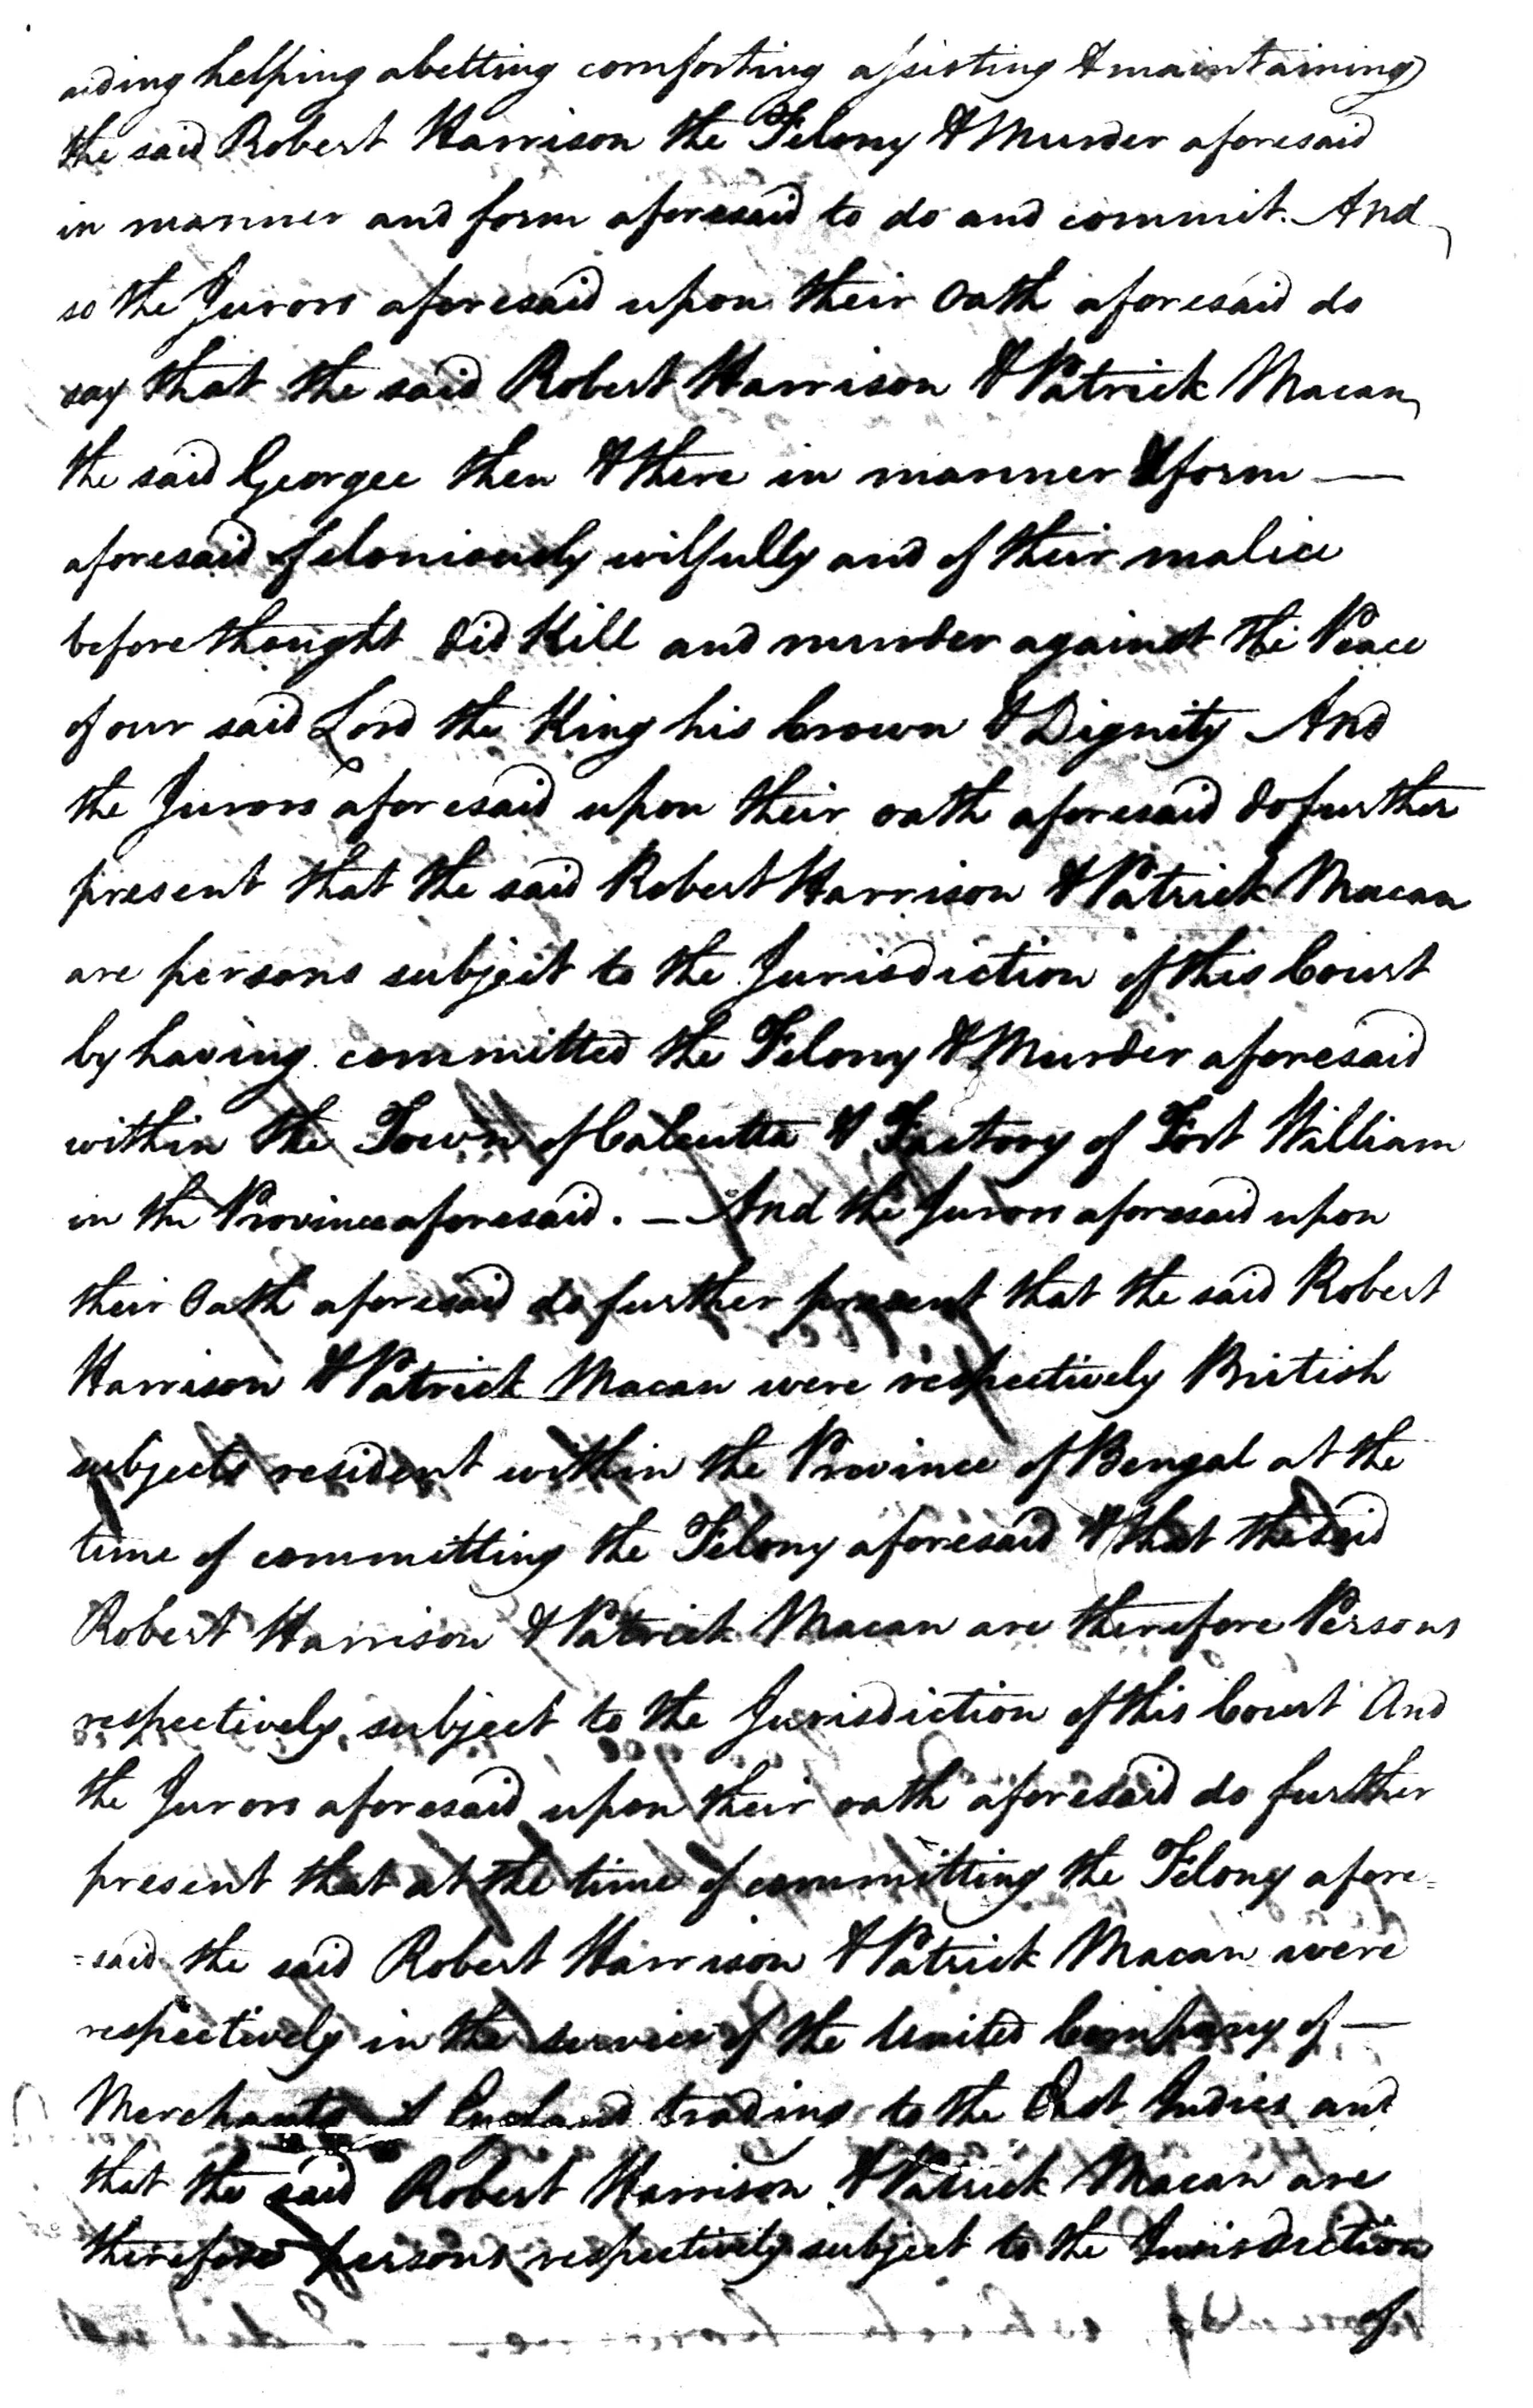 aiding helping abetting comforting assisting & maintaining
the said Robert Harrison the Felony & Murder aforesaid
in manner and form aforesaid to do and commit. And
so the Jurors aforesaid upon their Oath aforesaid do
say that the said Robert Harrison & Patrick Macan
the said Georgee then & there in manner & form —
aforesaid feloniously wilfully and of their malice
beforethought did Kill and murder against the Peace
of our said Lord the King his Crown & Dignity And
the Jurors aforesaid upon their oath aforesaid do further
present that the said Robert Harrison & Patrick Macan
are persons subject to the Jurisdiction of this Court
by having committed the Felony & Murder aforesaid
within the Town of Calcutta & Factory of Fort William
in the Province aforesaid. — And the Jurors aforesaid upon
their Oath aforesaid do further present that the said Robert
Harrison & Patrick Macan were respectively British
subjects resident within the Province of Bengal at the
time of committing the Felony aforesaid & that the said
Robert Harrison & Patrick Macan are therefore Persons
respectively subject to the Jurisdiction of this Court And
the Jurors aforesaid upon their oath aforesaid do further
present that at the time of committing the Felony afore=
=said the said Robert Harrison & Patrick Macan were
respectively in the service of the United Company of —
Merchants of England trading to the East Indies and
that the said Robert Harrison & Patrick Macan are
therefore persons respectively subject to the Jurisdiction
of